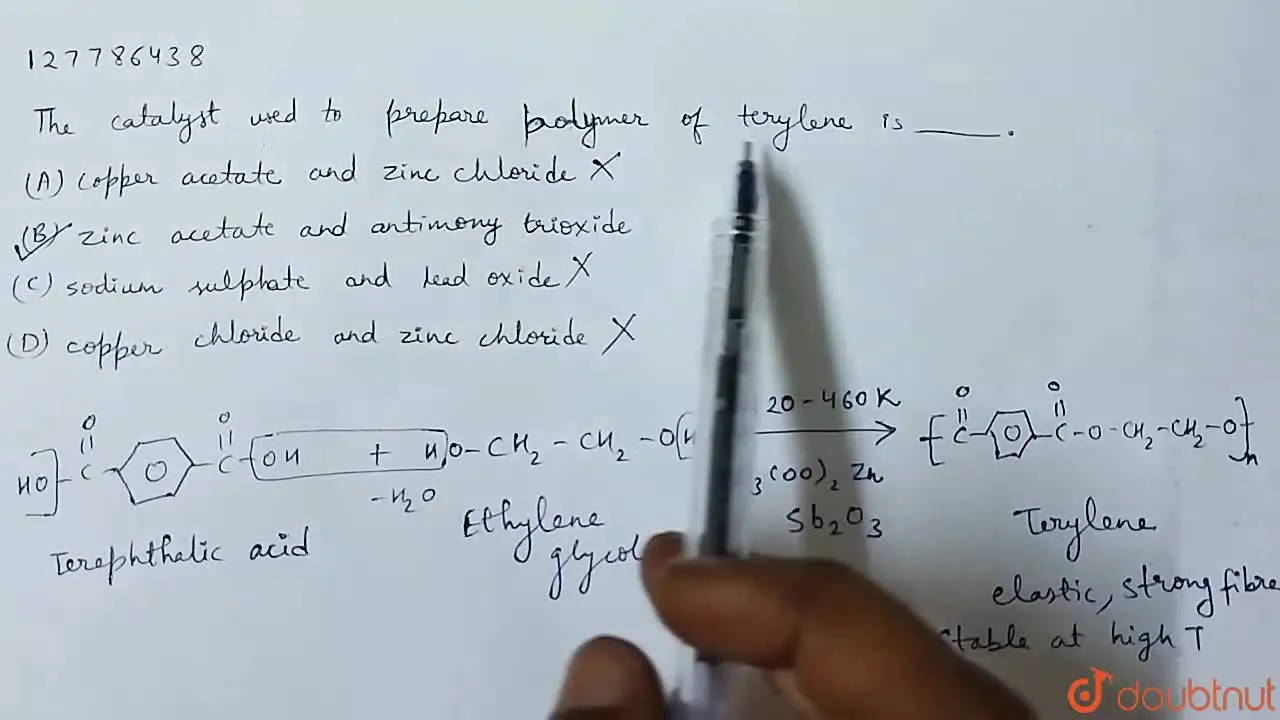 127786438
The catalyst used to prepare polymer of terylene is ____.
(A) copper acetate and zinc chloride X
(B) zinc acetate and antimony trioxide
(C) sodium sulphate and lead oxide X
(D) copper chloride and zinc chloride X
HO C O C O OH + HO-CH2-CH2-O H
-H2O
20-460K
3COO)2 Zn
Sb2O3
[C O C O -O-CH2-CH2-O]n
Terephthalic acid
Ethylene glycol
Terylene
elastic, strong fibre
stable at high T
doubtnut